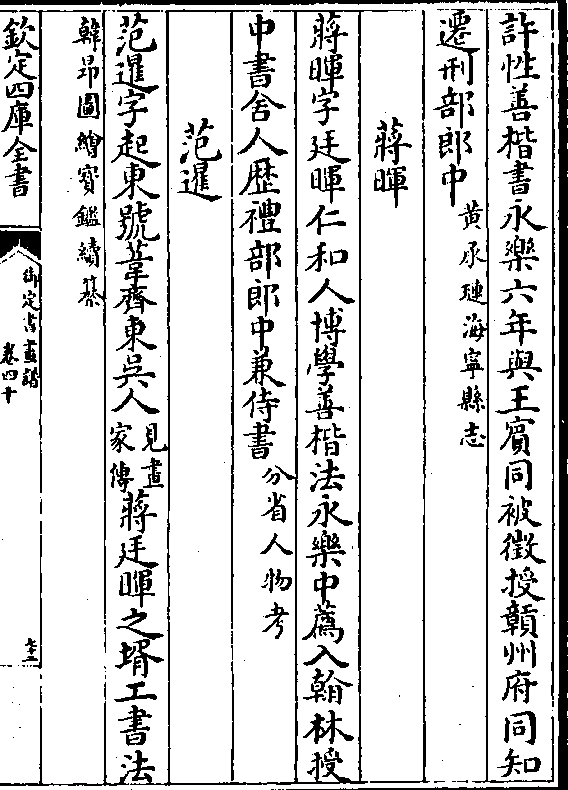 許性善楷書永樂六年與王賓同被徵授贛州府同知
遷刑部郎中黄承璉海寧縣志
蔣暉
蔣暉字廷暉仁和人博學善楷法永樂中薦入翰林授
中書舍人歴禮部郎中兼侍書分省人物考
范暹
范暹字起東號葦齊東吳人見畫家傳蔣廷暉之壻工書法
韓昂圖繪寳鑑續纂
欽定四庫全書
御定書畫譜
卷四十